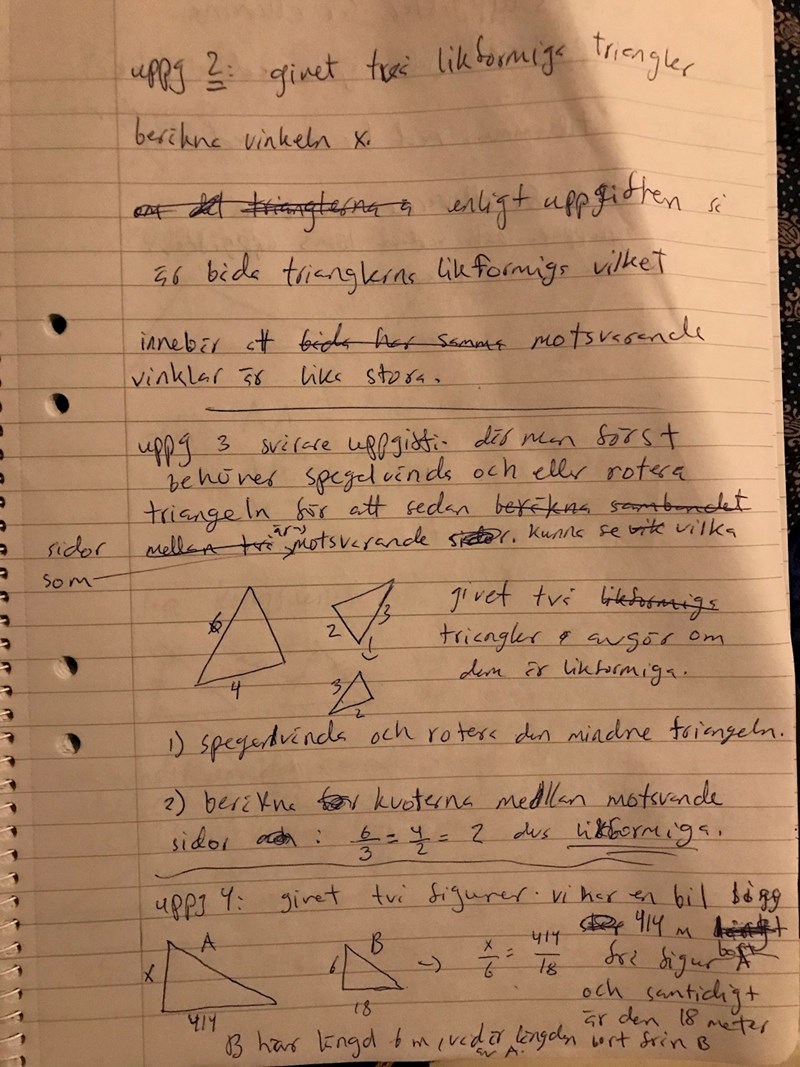 uppg 2: givet två likformiga trianglar
beräkna vinkeln x.
om det trianglerna a enligt uppgiften så
är båda trianglerna likformiga vilket
innebär att båda har samma motsvarande
vinklar är lika stora.
uppg 3 svårare uppgift där man först
behöver spegelvända och eller rotera
triangeln för att sedan beräkna sambandet
mellan två motsvarande sidor. kunna se vilka
är
sidor
som
6
4
2
3
3
2
givet två likformiga
triangler avgör om
dem är likformiga.
1) spegendvända och rotera den mindre triangeln.
2) beräkna kvoterna medllan motsvande
sidor : 6/3 = 4/2 = 2 dvs likformiga.
uppg 4: givet två figurer. vi har en bil
414 m
bort
A
x
414
B
6
18
→ x/6 = 414/18
från figur A
och samtidigt
är den 18 meter
B har längd 6 m, vad är längden bort från B
av A.